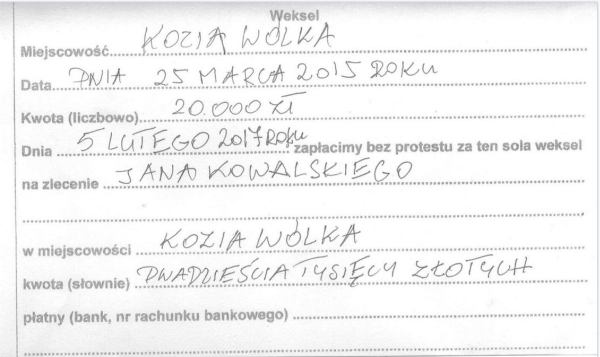 Weksel
Miejscowość KOZIA WÓLKA
Data DNIA 25 MARCA 2015 ROKU
Kwota (liczbowo) 20.000 ZŁ
Dnia 5 LUTEGO 2017 ROKU zapłacimy bez protestu za ten sola weksel
na zlecenie JANA KOWALSKIEGO
w miejscowości KOZIA WÓLKA
kwota (słownie) DWADZIEŚCIA TYSIĘCY ZŁOTYCH
płatny (bank, nr rachunku bankowego)